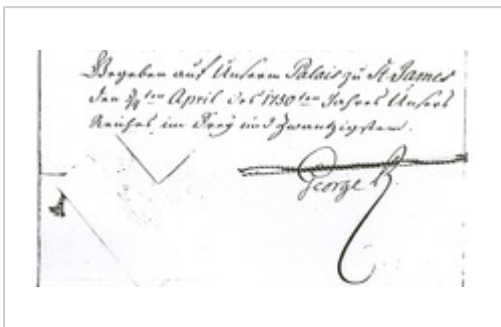 Gegeben auf Unserm Palais zu St. James
den April des 1750ten Jahres Unsers
Reiches im Drey und Zwantzigsten.
George R.